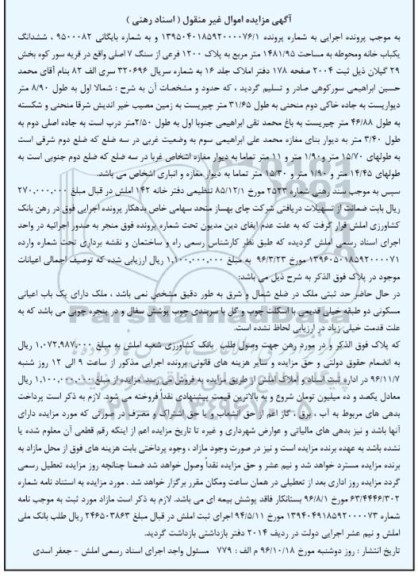 آگهی مزایده اموال غیر منقول ( اسناد رهنی )
به موجب پرونده اجرایی به شماره پرونده ۱۳۹۵۰۴۰۱۸۵۹۲۰۰۰۰۷۶/۱ و به شماره بایگانی ۹۵۰۰۰۸۲ ، ششدانگ
یکباب خانه ومحوطه به مساحت ۱۴۸۱/۹۵ متر مربع به پلاک ۱۲۰۰ فرعی از سنگ ۷ اصلی واقع در قریه سور کوه بخش
۲۹ گیلان ذیل ثبت ۲۰۰۴ صفحه ۱۷۸ دفتر املاک جلد ۱۶ به شماره سریال ۳۲۰۶۹۶ سری الف ۸۲ بنام آقای محمد
حسین ابراهیمی سورکوهی صادر و تسلیم گردید ، که حدود و مشخصات آن به شرح : شمالا اول به طول ۸/۹۰ متر
دیواریست به جاده خاکی دوم منحنی به طول ۳۱/۶۵ متر چپریست به زمین مصیب خیر اندیش شرقا منحنی و شکسته
به طول ۴۶/۸۸ متر چپریست به باغ محمد تقی ابراهیمی جنوبا اول به طول ۲/۵۰متر درب است به جاده اصلی دوم به
طول ۳/۴۰ متر به دیوار بنای مغازه محمد علی ابراهیمی سوم به وضعیت غربی در سه ضلع که ضلع دوم شرقی است
به طولهای ۱۵/۷۰ متر و۱/۹۰ متر و ۱۱ متر تماما به دیوار مغازه اشخاص غربا در سه ضلع که ضلع دوم جنوبی است به
طولهای ۱۴/۴۵ متر و ۱/۹۰ متر و ۱۵/۳۰ متر تماما به دیوار مغازه و انباری اشخاص می باشد.
سپس به موجب سند رهنی شماره ۲۵۲۳ مورخ ۸۵/۱۲/۱ تنظیمی دفتر خانه ۱۴۲ املش در قبال مبلغ ۲۷۰,۰۰۰,۰۰۰
ریال بابت ضمانت از تسهیلات دریافتی شرکت چای بهساز متحد سهامی خاص بدهکار پرونده اجرایی فوق در رهن بانک
کشاورزی املش قرار گرفت که به علت عدم ایفای دین مدیون تحت شماره پرونده فوق منجر به صدور اجرائیه در واحد
اجرای اسناد رسمی املش گردیده که طبق نظر کارشناس رسمی راه و ساختمان و نقشه برداری تحت شماره وارده
۱۳۹۶۰۵۰۱۸۵۹۲۰۰۰۰۷۱ مورخ ۹۶/۳/۲۳ به مبلغ ۱,۱۰۰,۰۰۰,۰۰۰ ریال ارزیابی شده که توصیف اجمالی اعیانات
موجود در پلاک فوق الذکر به شرح ذیل می باشد:
در حال حاضر حد ثبتی ملک در ضلع شمال و شرق به طور دقیق مشخص نمی باشد ، ملک دارای یک باب اعیانی
مسکونی دو طبقه خیلی قدیمی با اسکلت چوب و گل با سربندی چوب پوشش سفال و در پنجره چوبی می باشد که به
علت قدمت خیلی زیاد در ارزیابی لحاظ نشده است.
که پلاک فوق الذکر و در مورد رهن جهت وصول طلب بانک کشاورزی شعبه املش به مبلغ ۱,۰۷۲,۹۸۷,۰۰۰ ریال
به انضمام حقوق دولتی و حق مزایده و سایر هزینه های قانونی پرونده اجرایی مذکور از ساعت ۹ الی ۱۲ روز شنبه
۹۶/۱۱/۷ در اداره ثبت اسناد و املاک املش از طریق مزایده به فروش می رسد. مزایده از مبلغ ۱,۱۰۰,۰۰۰,۰۰۰ ریال
معادل یکصد و ده میلیون تومان شروع و به بالاترین قیمت پیشنهادی نقداً فروخته می شود. لازم به ذکر است پرداخت
بدهی های مربوط به آب ، برق ، گاز اعم از حق انشعاب و یا حق اشتراک و مصرف در صورتی که مورد مزایده دارای
آنها باشد و نیز بدهی های مالیاتی و عوارض شهرداری و غیره تا تاریخ مزایده اعم از اینکه رقم قطعی آن معلوم شده یا
نشده باشد به عهده برنده مزایده است و نیز در صورت وجود مازاد ، وجوه پرداختی بابت هزینه های فوق از محل مازاد به
برنده مزایده مسترد خواهد شد و نیم عشر و حق مزایده نقداً وصول خواهد شد ضمنا چنانچه روز مزایده تعطیل رسمی
گردد مزایده روز اداری بعد از تعطیلی در همان ساعت ومکان مقرر برگزار خواهد شد . مورد مزایده به استناد نامه شماره
۶۳/۴۴۴۶/۳۰۲ مورخ ۹۶/۸/۱ بستانکار فاقد پوشش بیمه ای می باشد. لازم به ذکر است مازاد مورد ثبت به موجب نامه
شماره ۱۳۹۴۰۴۹۱۸۵۹۲۰۰۰۰۷۳ مورخ ۹۴/۵/۱۱ اجرای ثبت املش در قبال مبلغ ۲۴۶۵۰۳۸۶۳ ریال طلب بانک ملی
املش و نیم عشر اجرایی دولت در ردیف ۲۰۱۴ دفتر بازداشتی بازداشت گردید.
تاریخ انتشار : روز دوشنبه مورخ ۹۶/۱۰/۱۸ م الف : ۷۷۹ مسئول واحد اجرای اسناد رسمی املش - جعفر اسدی